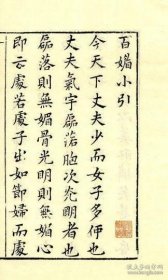 百媚小引
今天下丈夫少而女子多何也
丈夫氣宇磊落胸次光明者也
磊落則無媚骨光明則無媚心
即云處若處子出如節婦而處